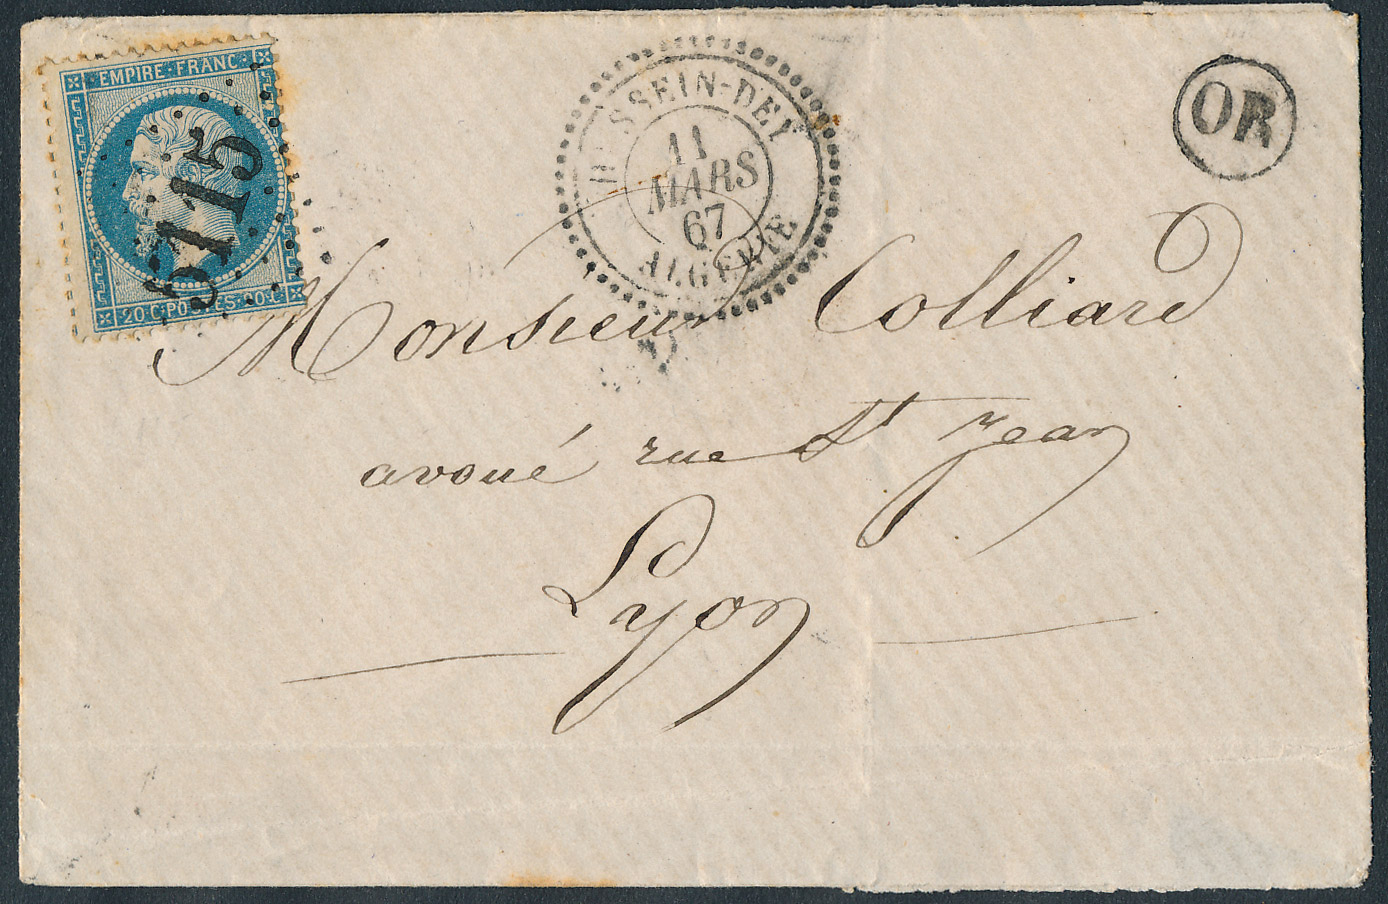 EMPIRE FRANC
5115
20 C·POSTES·20 C
HUSSEIN-DEY
11
MARS
67
ALGERIE
OR
Monsieur Colliard
avoué rue St Jean
Lyon